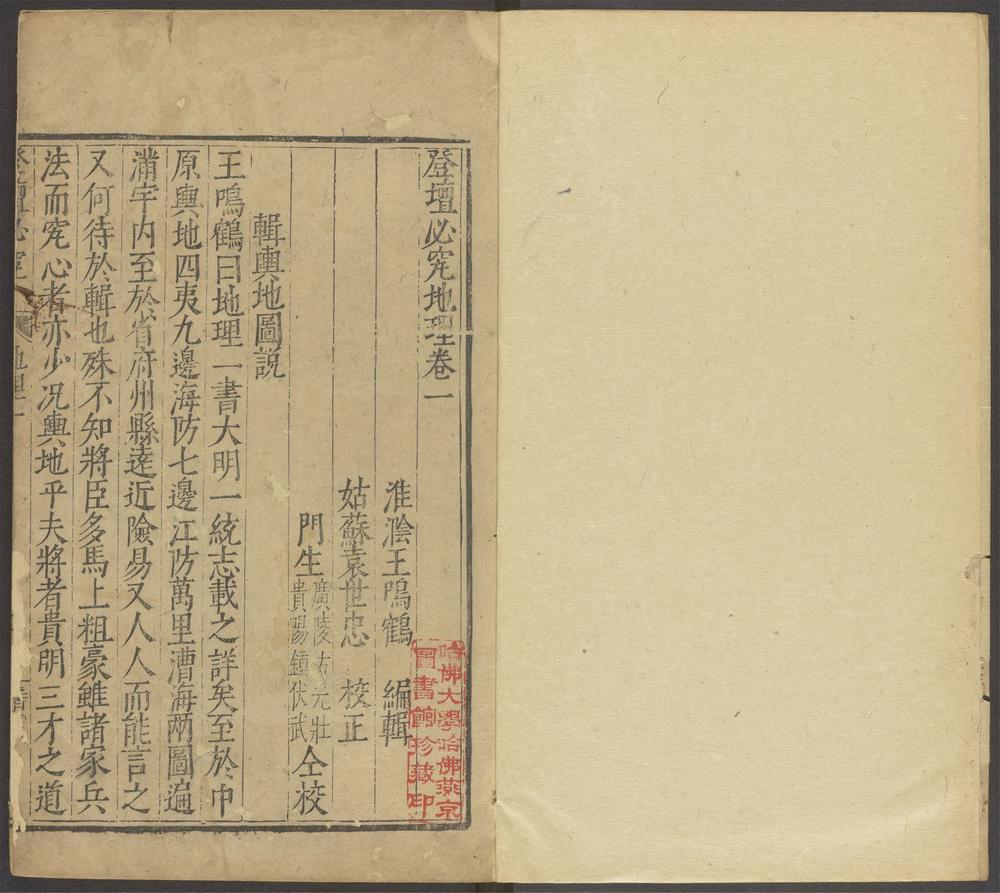 登壇必究地理卷一
淮隂王鳴鶴 編輯
姑蘇袁世忠 校正
門生 廣陵古元壯 貴陽鎮伏武 仝校
輯輿地圖説
王鳴鶴曰地理一書大明一統志載之詳矣至於中
原輿地四夷九邊海防七邊江防萬里漕海兩圖遍
滿宇内至於省府州縣逺近險易又人人而能言之
又何待於輯也殊不知將臣多馬上粗豪雖諸家兵
法而究心者亦少况輿地乎夫將者貴明三才之道
登壇必究 地理一
哈佛大學哈佛燕京
圖書館珍藏印